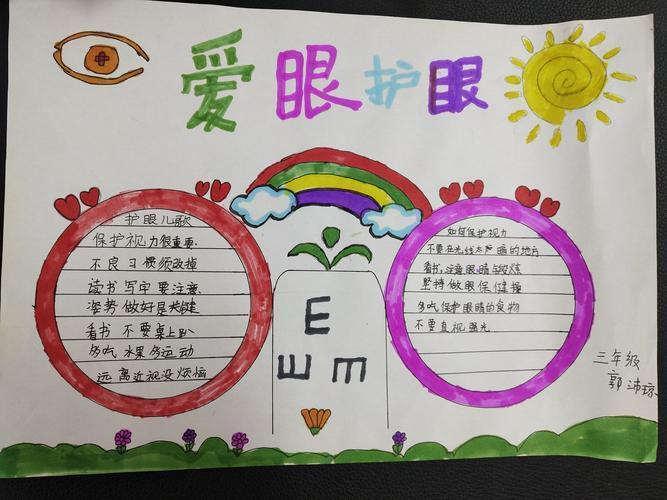 爱眼护眼
护眼儿歌
保护视力很重要
不良习惯须改掉
读书写字要注意
姿势做好是关键
看书不要桌上趴
多吃水果多运动
远离近视没烦恼
E
Ш m
如何保护视力
不要在光线太暗的地方
看书,注意眼睛
坚持做眼保健操
多吃保护眼睛的食物
不要直视强光
三年级
郭沛琼